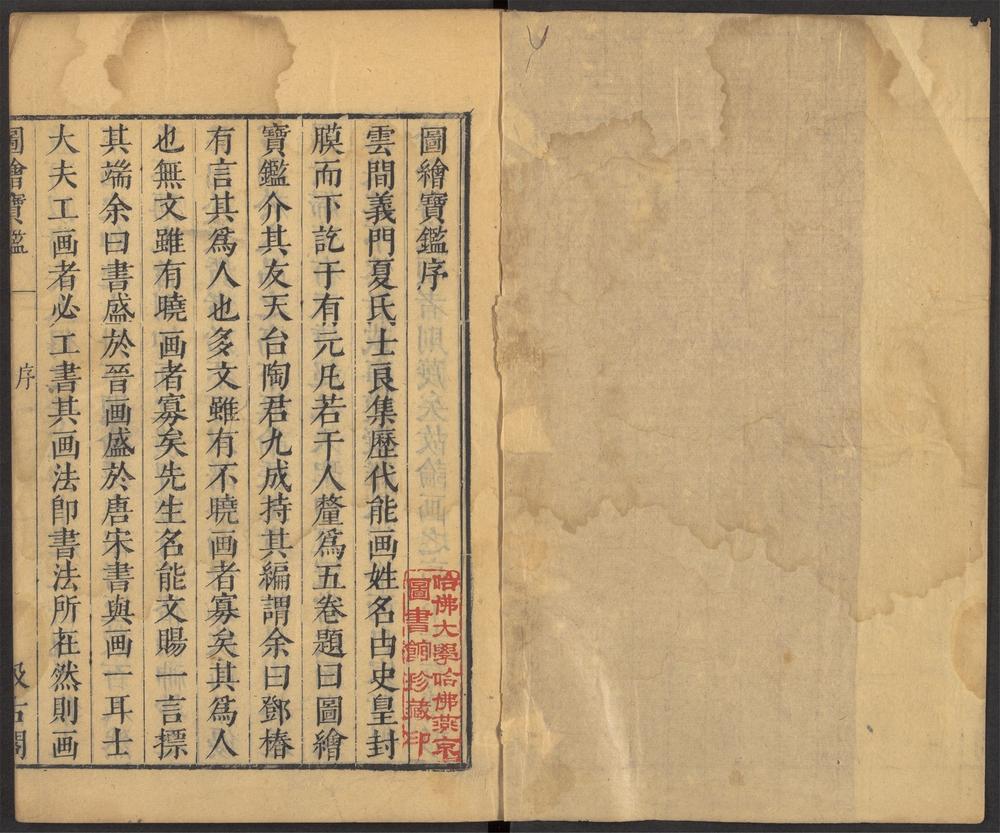 圖繪寶鑑序
雲間義門夏氏士良集歷代能画姓名由史皇封
膜而下訖于有元凡若干人釐爲五卷題曰圖繪
寶鑑介其友天台陶君九成持其編謂余曰鄧椿
有言其爲人也多文雖有不曉画者寡矣其爲人
也無文雖有曉画者寡矣先生名能文賜一言摽
其端余曰書盛於晉画盛於唐宋書與画一耳士
大夫工画者必工書其画法卽書法所在然則画
圖繪寶鑑 序 汲古閣
哈佛大學哈佛燕京
圖書館珍藏印